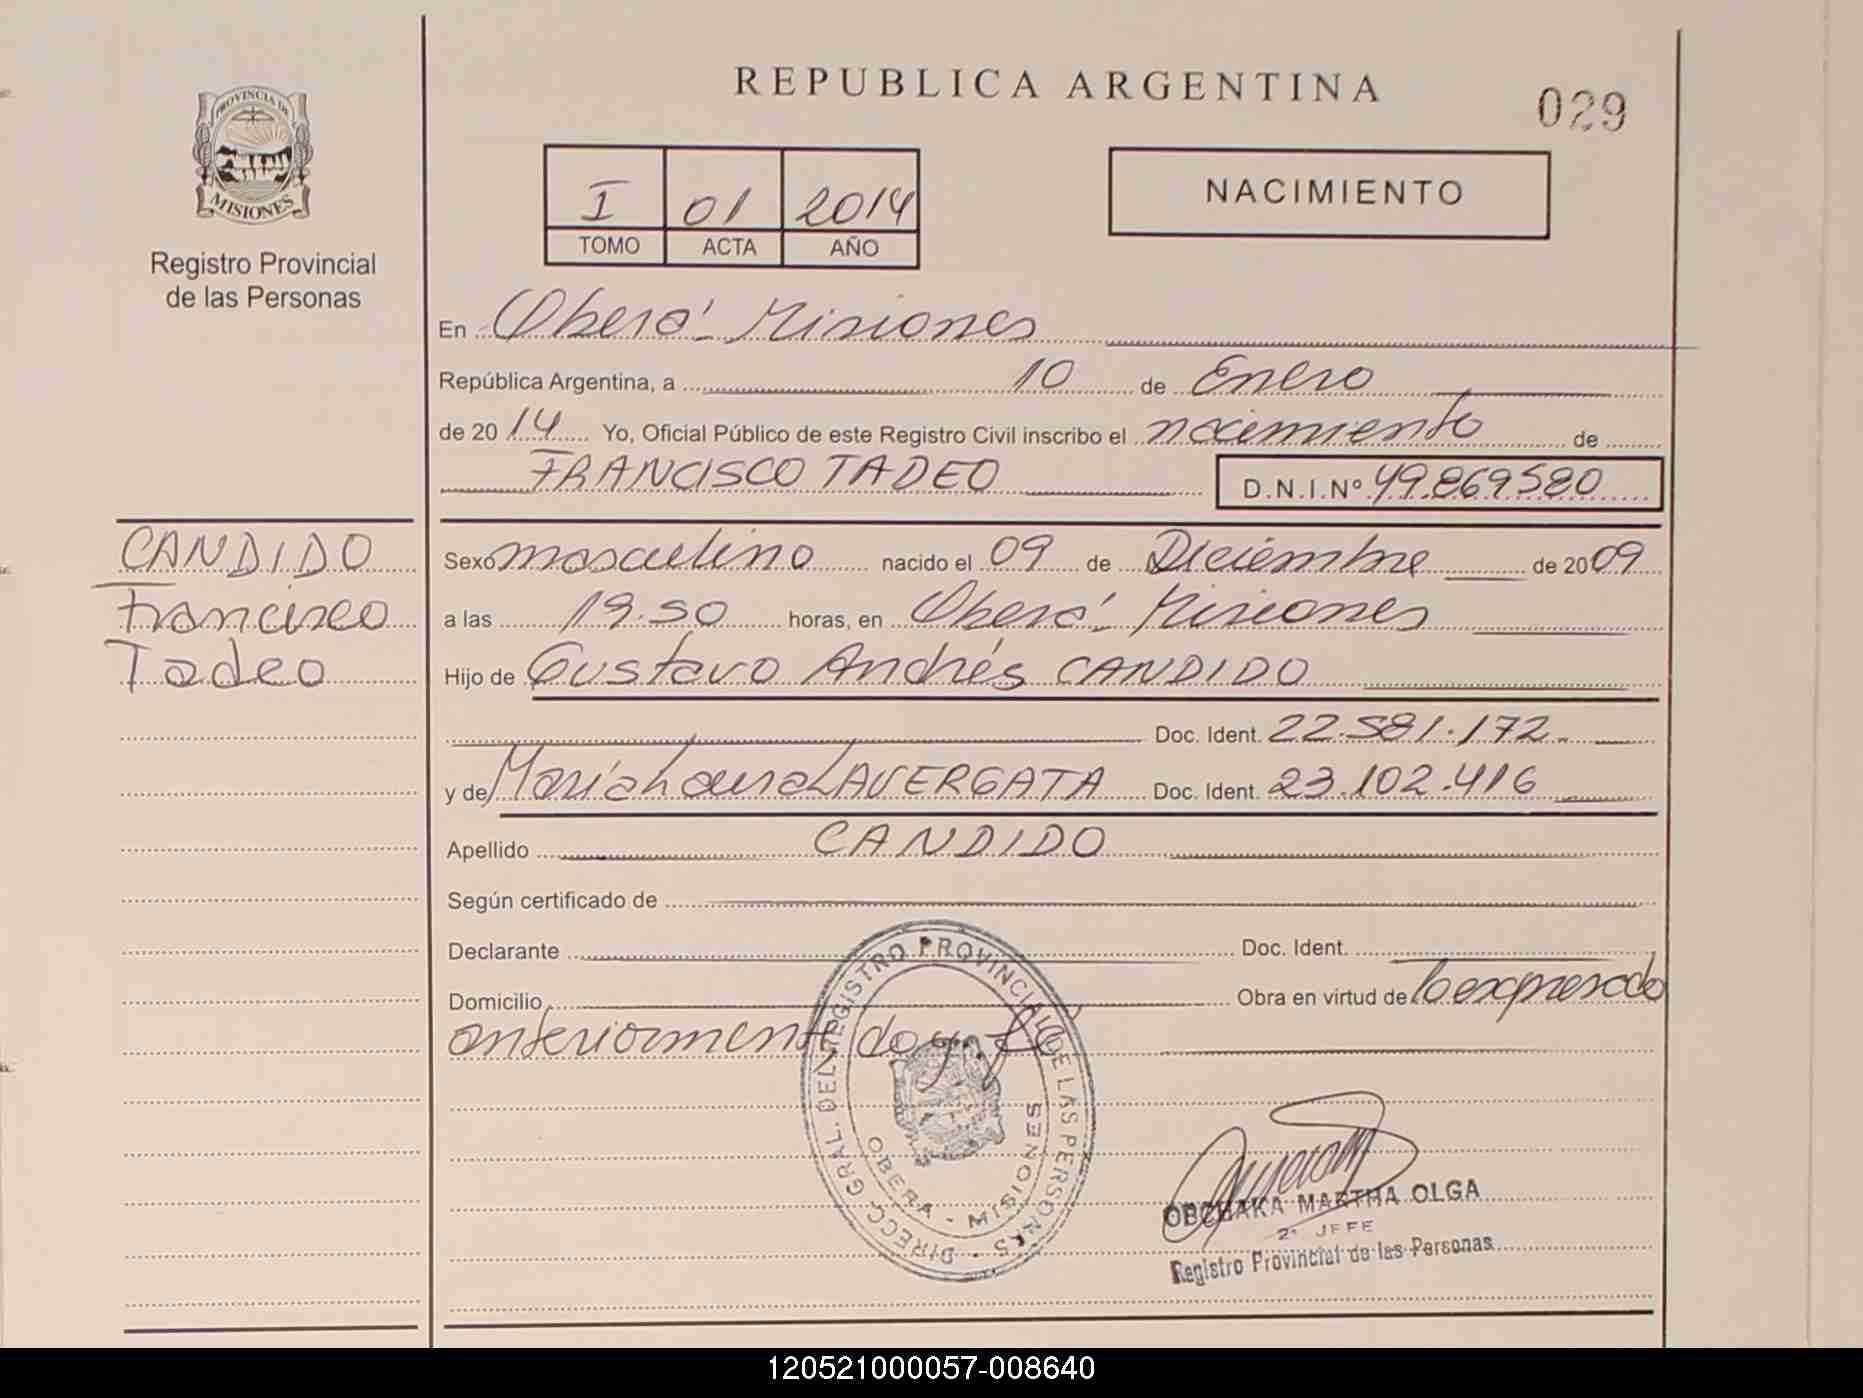 REPUBLICA ARGENTINA
029
PROVINCIA DE
MISIONES
Registro Provincial
de las Personas
I 01 2014
TOMO ACTA AÑO
NACIMIENTO
En Oberá - Misiones
República Argentina, a 10 de Enero
de 2014 Yo, Oficial Público de este Registro Civil inscribo el nacimiento de
FRANCISCO TADEO D.N.I.Nº 49.869580
CANDIDO
Francisco
Tadeo
Sexo masculino nacido el 09 de Diciembre de 2009
a las 19.50 horas, en Oberá - Misiones
Hijo de Gustavo Andrés CANDIDO
Doc. Ident. 22.581.172
y de María Laura LAVERGATA Doc. Ident. 23.102.416
Apellido CANDIDO
Según certificado de
Declarante Doc. Ident.
Domicilio Obra en virtud de lo expresado
anteriormente, doy fe
DIRECC. GRAL. DEL REGISTRO PROVINCIAL DE LAS PERSONAS
OBERA - MISIONES
OBCHAKA MARTHA OLGA
2º JEFE
Registro Provincial de las Personas
120521000057-008640